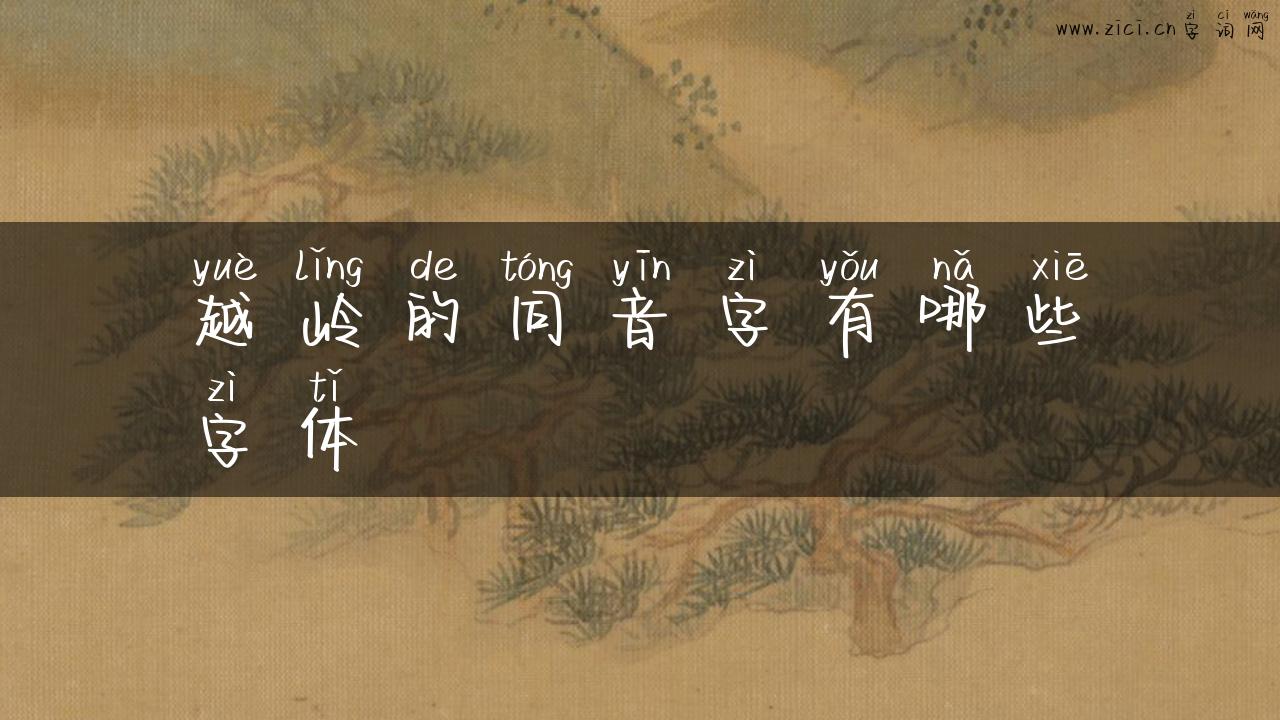 zì cí wǎng
www.zici.cn 字 词 网
yuè lǐng de tóng yīn zì yǒu nǎ xiē
越 岭 的 同 音 字 有 哪 些
zì tǐ
字 体